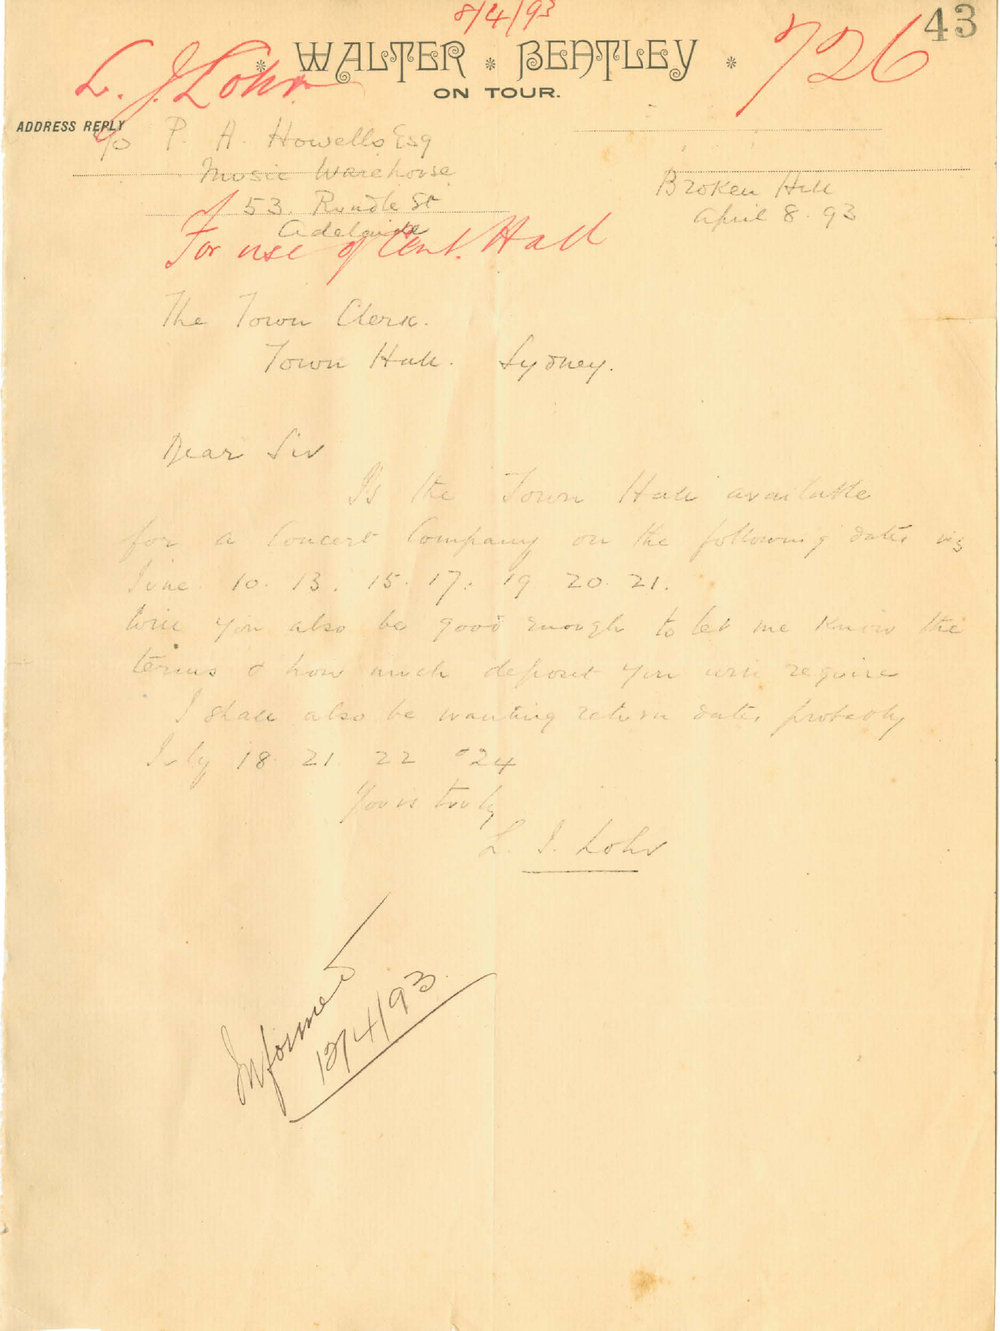 8/4/93
43
L. J. Lohr.
WALTER * BEATLEY
726
ON TOUR.
ADDRESS REPLY
c/o P. A. Howells Esq
Music Warehouse
53. Rundle St
Adelaide
Broken Hill
April 8. 93
For use of Cent. Hall
The Town Clerk.
Town Hall. Sydney.
Dear Sir
Is the Town Hall available
for a Concert Company on the following dates viz
June 10. 13. 15. 17. 19 20. 21.
Will you also be good enough to let me know the
terms & how much deposit you will require
I shall also be wanting return dates probably
July 18. 21. 22 & 24
Yours truly
L. J. Lohr
Informed
12/4/93